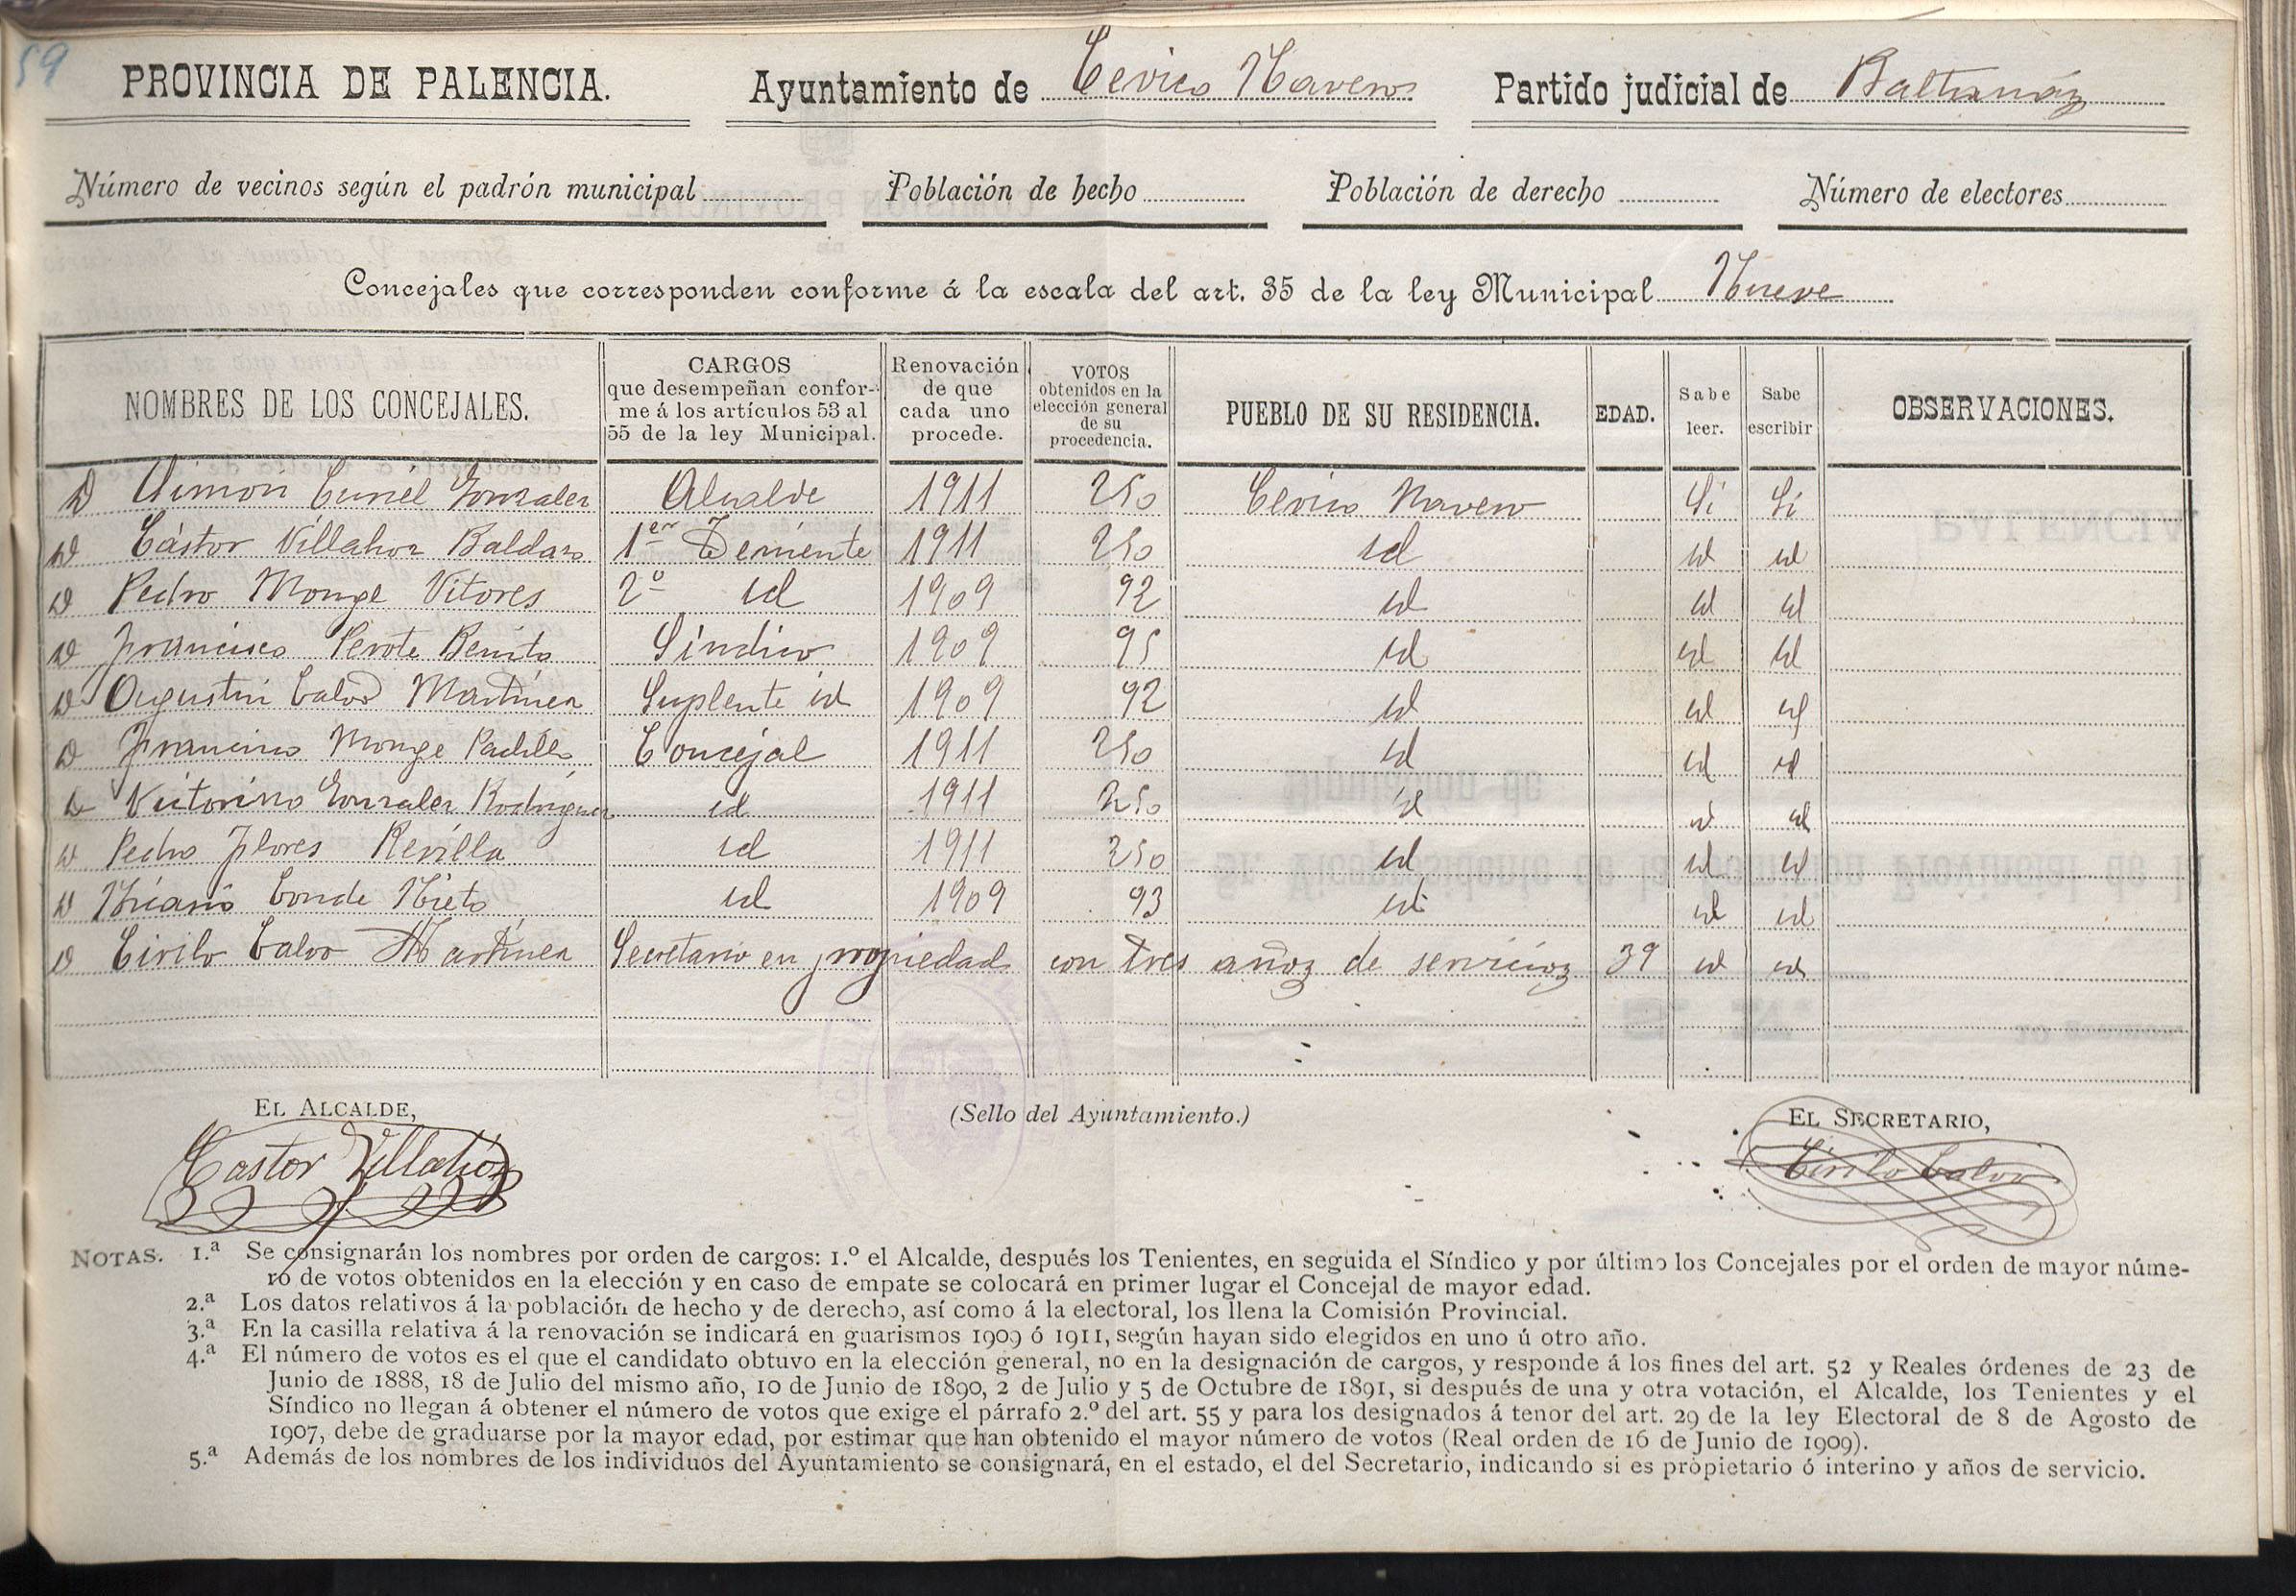 59
PROVINCIA DE PALENCIA. Ayuntamiento de Cevico Navero Partido judicial de Baltanáz
Número de vecinos según el padrón municipal Población de hecho Población de derecho Número de electores
Concejales que corresponden conforme á la escala del art. 35 de la ley Municipal Nueve
NOMBRES DE LOS CONCEJALES. CARGOS que desempeñan conforme á los artículos 53 al 55 de la ley Municipal. Renovación de que cada uno procede. VOTOS obtenidos en la elección general de su procedencia. PUEBLO DE SU RESIDENCIA. EDAD. Sabe leer. Sabe escribir OBSERVACIONES.
D Simón Curiel Gonzalez Alcalde 1911 250 Cevico Navero Si Si
D Cástor Villahoz Baldazo 1er Teniente 1911 250 id id id
D Pedro Monge Vitores 2º id 1909 92 id id id
D Francisco Perote Benito Síndico 1909 95 id id id
D Agustin Calvo Martinez Suplente id 1909 92 id id id
D Francisco Monge Padilla Concejal 1911 250 id id id
D Victorino Gonzalez Rodriguez id 1911 250 id id id
D Pedro Flores Revilla id 1911 250 id id id
D Nicasio Conde Nieto id 1909 93 id id id
D Cirilo Calvo Martinez Secretario en propiedad con tres años de servicios 39 id id
EL ALCALDE, (Sello del Ayuntamiento.) EL SECRETARIO,
Castor Villahoz Cirilo Calvo
NOTAS. 1.ª Se consignarán los nombres por orden de cargos: 1.º el Alcalde, después los Tenientes, en seguida el Síndico y por último los Concejales por el orden de mayor núme-
ro de votos obtenidos en la elección y en caso de empate se colocará en primer lugar el Concejal de mayor edad.
2.ª Los datos relativos á la población de hecho y de derecho, así como á la electoral, los llena la Comisión Provincial.
3.ª En la casilla relativa á la renovación se indicará en guarismos 1909 ó 1911, según hayan sido elegidos en uno ú otro año.
4.ª El número de votos es el que el candidato obtuvo en la elección general, no en la designación de cargos, y responde á los fines del art. 52 y Reales órdenes de 23 de
Junio de 1888, 18 de Julio del mismo año, 10 de Junio de 1890, 2 de Julio y 5 de Octubre de 1891, si después de una y otra votación, el Alcalde, los Tenientes y el
Síndico no llegan á obtener el número de votos que exige el párrafo 2.º del art. 55 y para los designados á tenor del art. 29 de la ley Electoral de 8 de Agosto de
1907, debe de graduarse por la mayor edad, por estimar que han obtenido el mayor número de votos (Real orden de 16 de Junio de 1909).
5.ª Además de los nombres de los individuos del Ayuntamiento se consignará, en el estado, el del Secretario, indicando si es propietario ó interino y años de servicio.